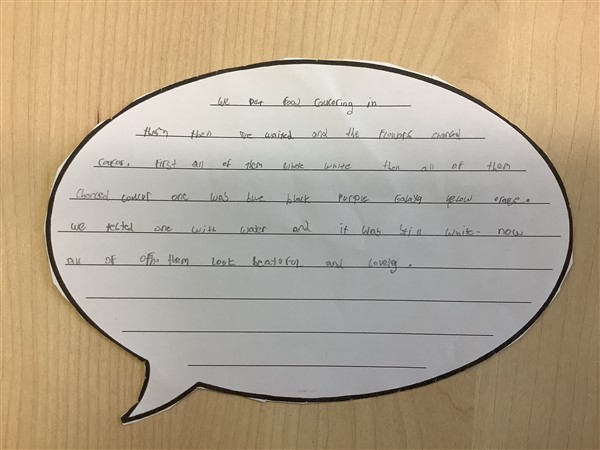 We put food coulering in
them then we waited and the flowers changed
coulor. First all of them where white then all of them
changed coulor one was blue black purple Galaxy yelow orange.
we tested one with water and it was still white. now
all of them look beatoful and lovely.